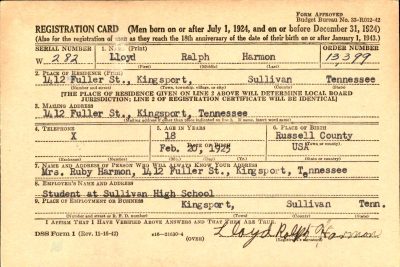 FORM APPROVED
Budget Bureau No. 33-R012-42
REGISTRATION CARD (Men born on or after July 1, 1924, and on or before December 31, 1924)
(Also for the registration of men as they reach the 18th anniversary of the date of their birth on or after January 1, 1943.)
SERIAL NUMBER 1. NAME (Print) ORDER NUMBER
W 282 Lloyd Ralph Harmon 13399
(First) (Middle) (Last)
2. PLACE OF RESIDENCE (Print)
1412 Fuller St., Kingsport, Sullivan Tennessee
(Number and street) (Town, township, village, or city) (County) (State)
[THE PLACE OF RESIDENCE GIVEN ON LINE 2 ABOVE WILL DETERMINE LOCAL BOARD
JURISDICTION; LINE 2 OF REGISTRATION CERTIFICATE WILL BE IDENTICAL]
3. MAILING ADDRESS
1412 Fuller St., Kingsport, Tennessee
4. TELEPHONE 5. AGE IN YEARS 6. PLACE OF BIRTH
X 18 Russell County
DATE OF BIRTH
Feb. USA
7. NAME AND ADDRESS OF PERSON WHO WILL ALWAYS KNOW YOUR ADDRESS
Mrs. Ruby Harmon, 1412 Fuller St., Kingsport, Tennessee
8. EMPLOYER'S NAME AND ADDRESS
Student at Sullivan High School
9. PLACE OF EMPLOYMENT OR BUSINESS
Kingsport, Sullivan Tenn.
(Number and street or R. F. D. number) (Town) (County) (State)
I AFFIRM THAT I HAVE VERIFIED ABOVE ANSWERS AND THAT THEY ARE TRUE.
DSS Form 1 (Rev. 11-16-42) (OVER) Lloyd Ralph Harmon